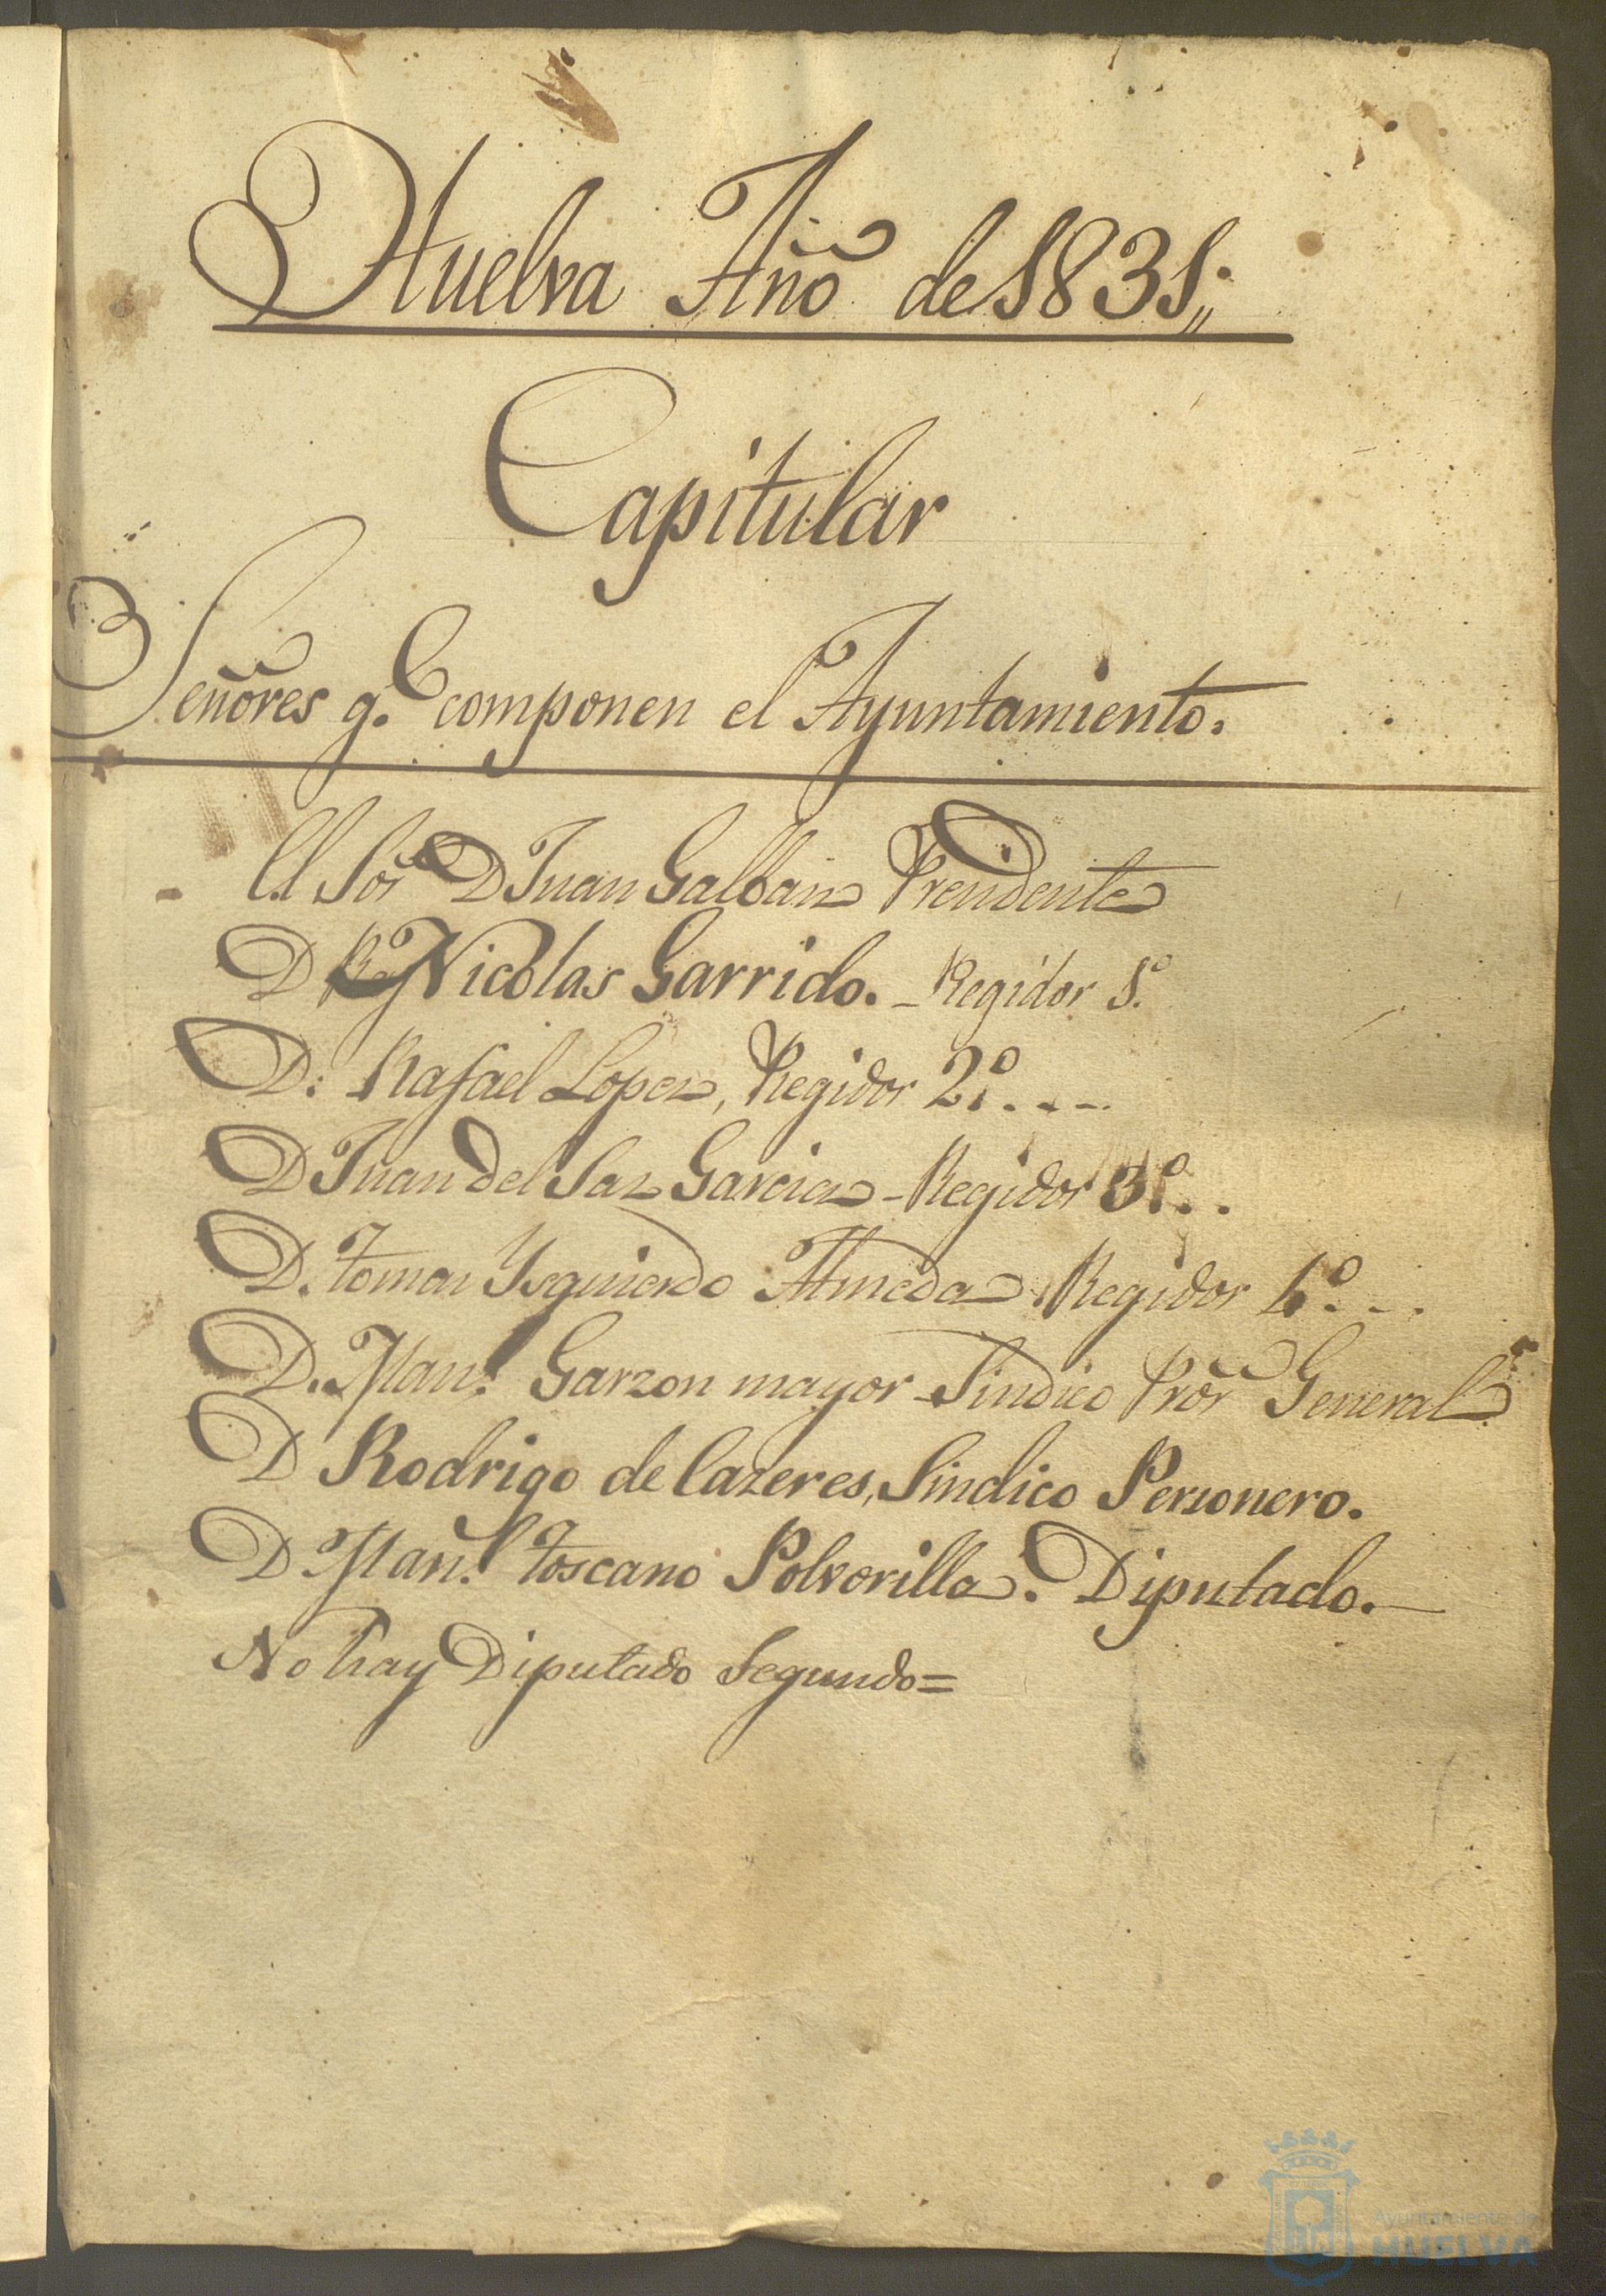 Huelva Año de 1831,,
Capitular
Señores q.e componen el Ayuntamiento.
El Sor. D Juan Galban Presidente
D Nicolas Garrido. - Regidor 1.º
D. Rafael Lopez, Regidor 2.º...-
D Juan del Saz Garcia - Regidor 3.º..
D. tomas Ysquierdo Almeda Regidor 4.º - - .
D. Man.l Garzon mayor - Sindico Pror General
D Rodrigo de Cazeres, Sindico Personero.
D Man.l toscano Polvorilla. Diputado.-
No hay Diputado Segundo=
Ayuntamiento de
HUELVA